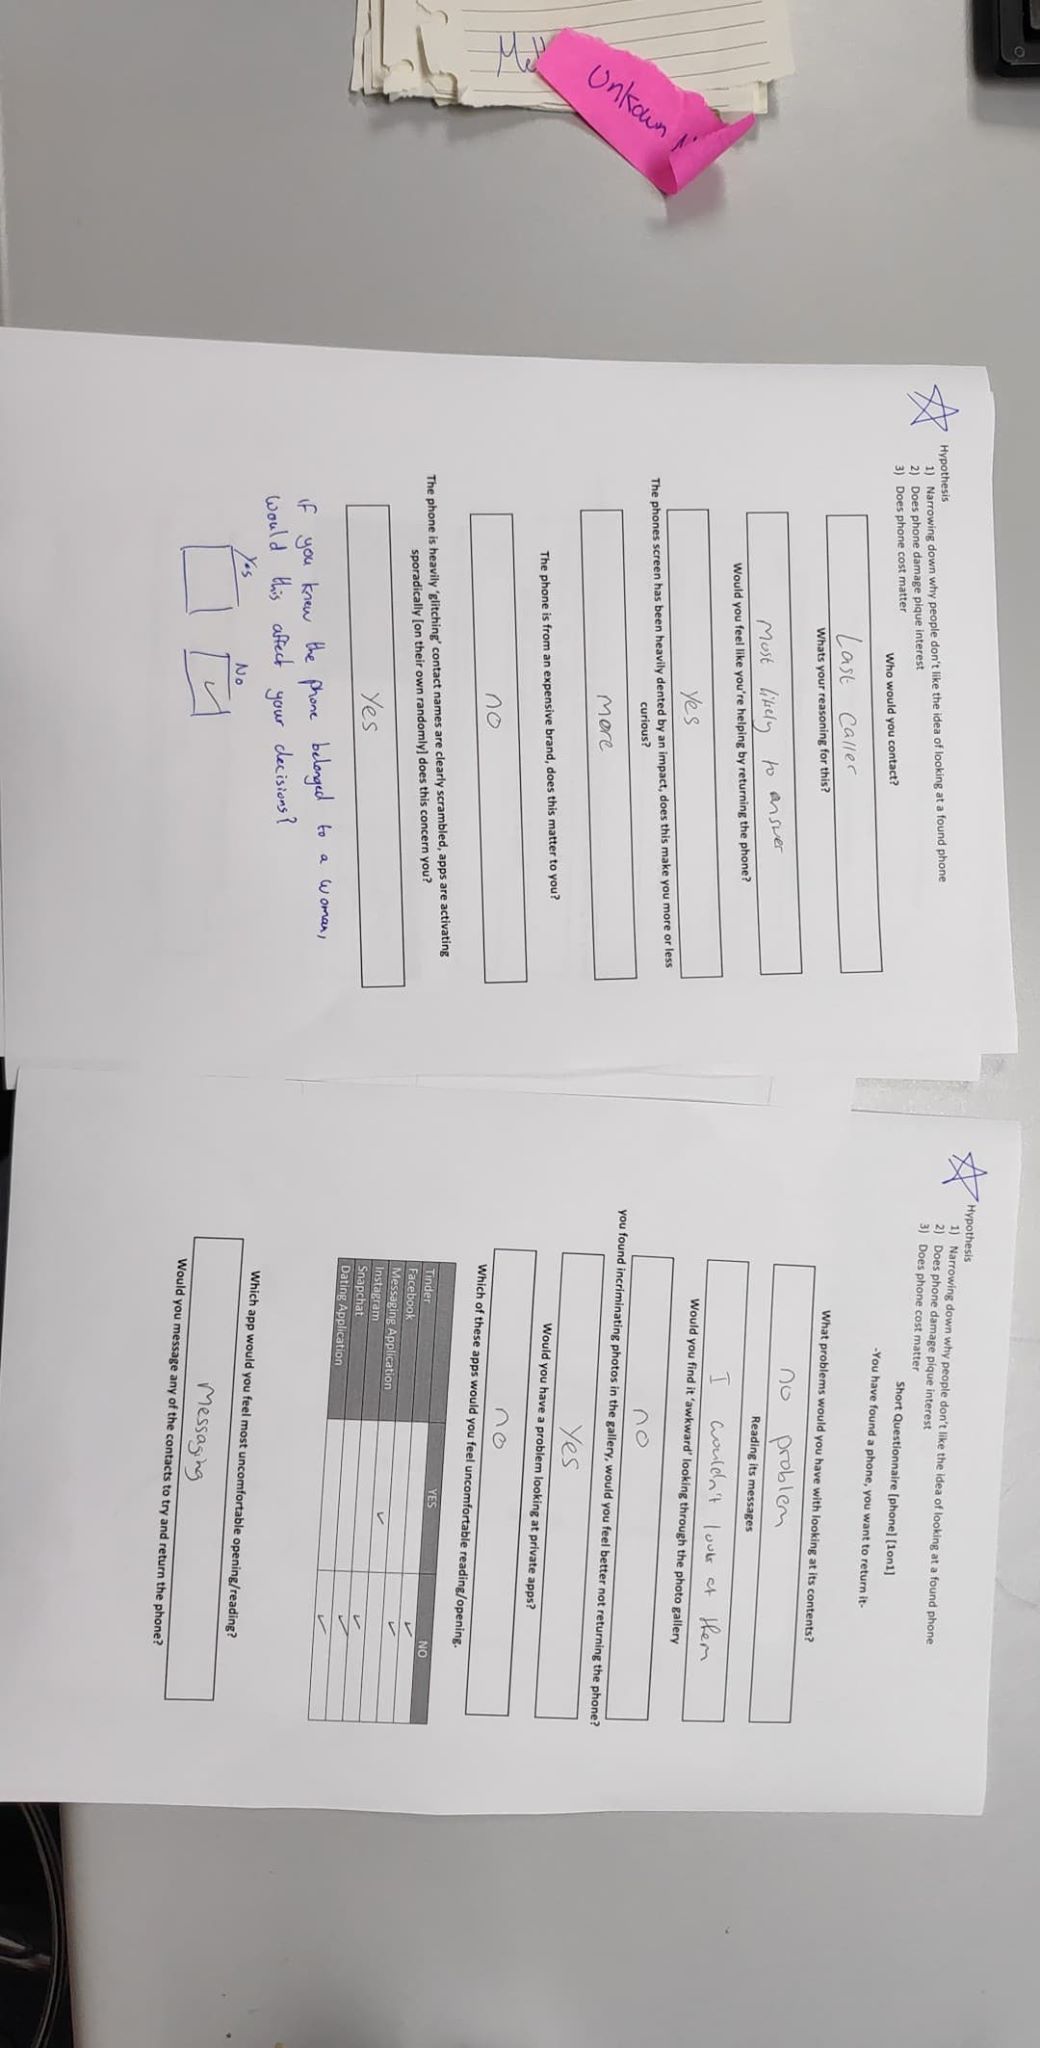 Unkown
Hypothesis
1) Narrowing down why people don't like the idea of looking at a found phone
2) Does phone damage pique interest
3) Does phone cost matter
Who would you contact?
Last caller
Whats your reasoning for this?
Most likely to answer
Would you feel like you're helping by returning the phone?
Yes
The phones screen has been heavily dented by an impact, does this make you more or less
curious?
More
The phone is from an expensive brand, does this matter to you?
no
The phone is heavily 'glitching' contact names are clearly scrambled, apps are activating
sporadically [on their own randomly] does this concern you?
Yes
if you knew the phone belonged to a woman,
would this affect your decisions?
Yes No
Hypothesis
1) Narrowing down why people don't like the idea of looking at a found phone
2) Does phone damage pique interest
3) Does phone cost matter
Short Questionnaire [phone] [1on1]
-You have found a phone, you want to return it-
What problems would you have with looking at its contents?
no problem
Reading its messages
I wouldn't look at them
Would you find it 'awkward' looking through the photo gallery
no
you found incriminating photos in the gallery, would you feel better not returning the phone?
Yes
Would you have a problem looking at private apps?
no
Which of these apps would you feel uncomfortable reading/opening.
YES NO
Tinder
Facebook
Messaging Application
Instagram
Snapchat
Dating Application
Which app would you feel most uncomfortable opening/reading?
Messaging
Would you message any of the contacts to try and return the phone?